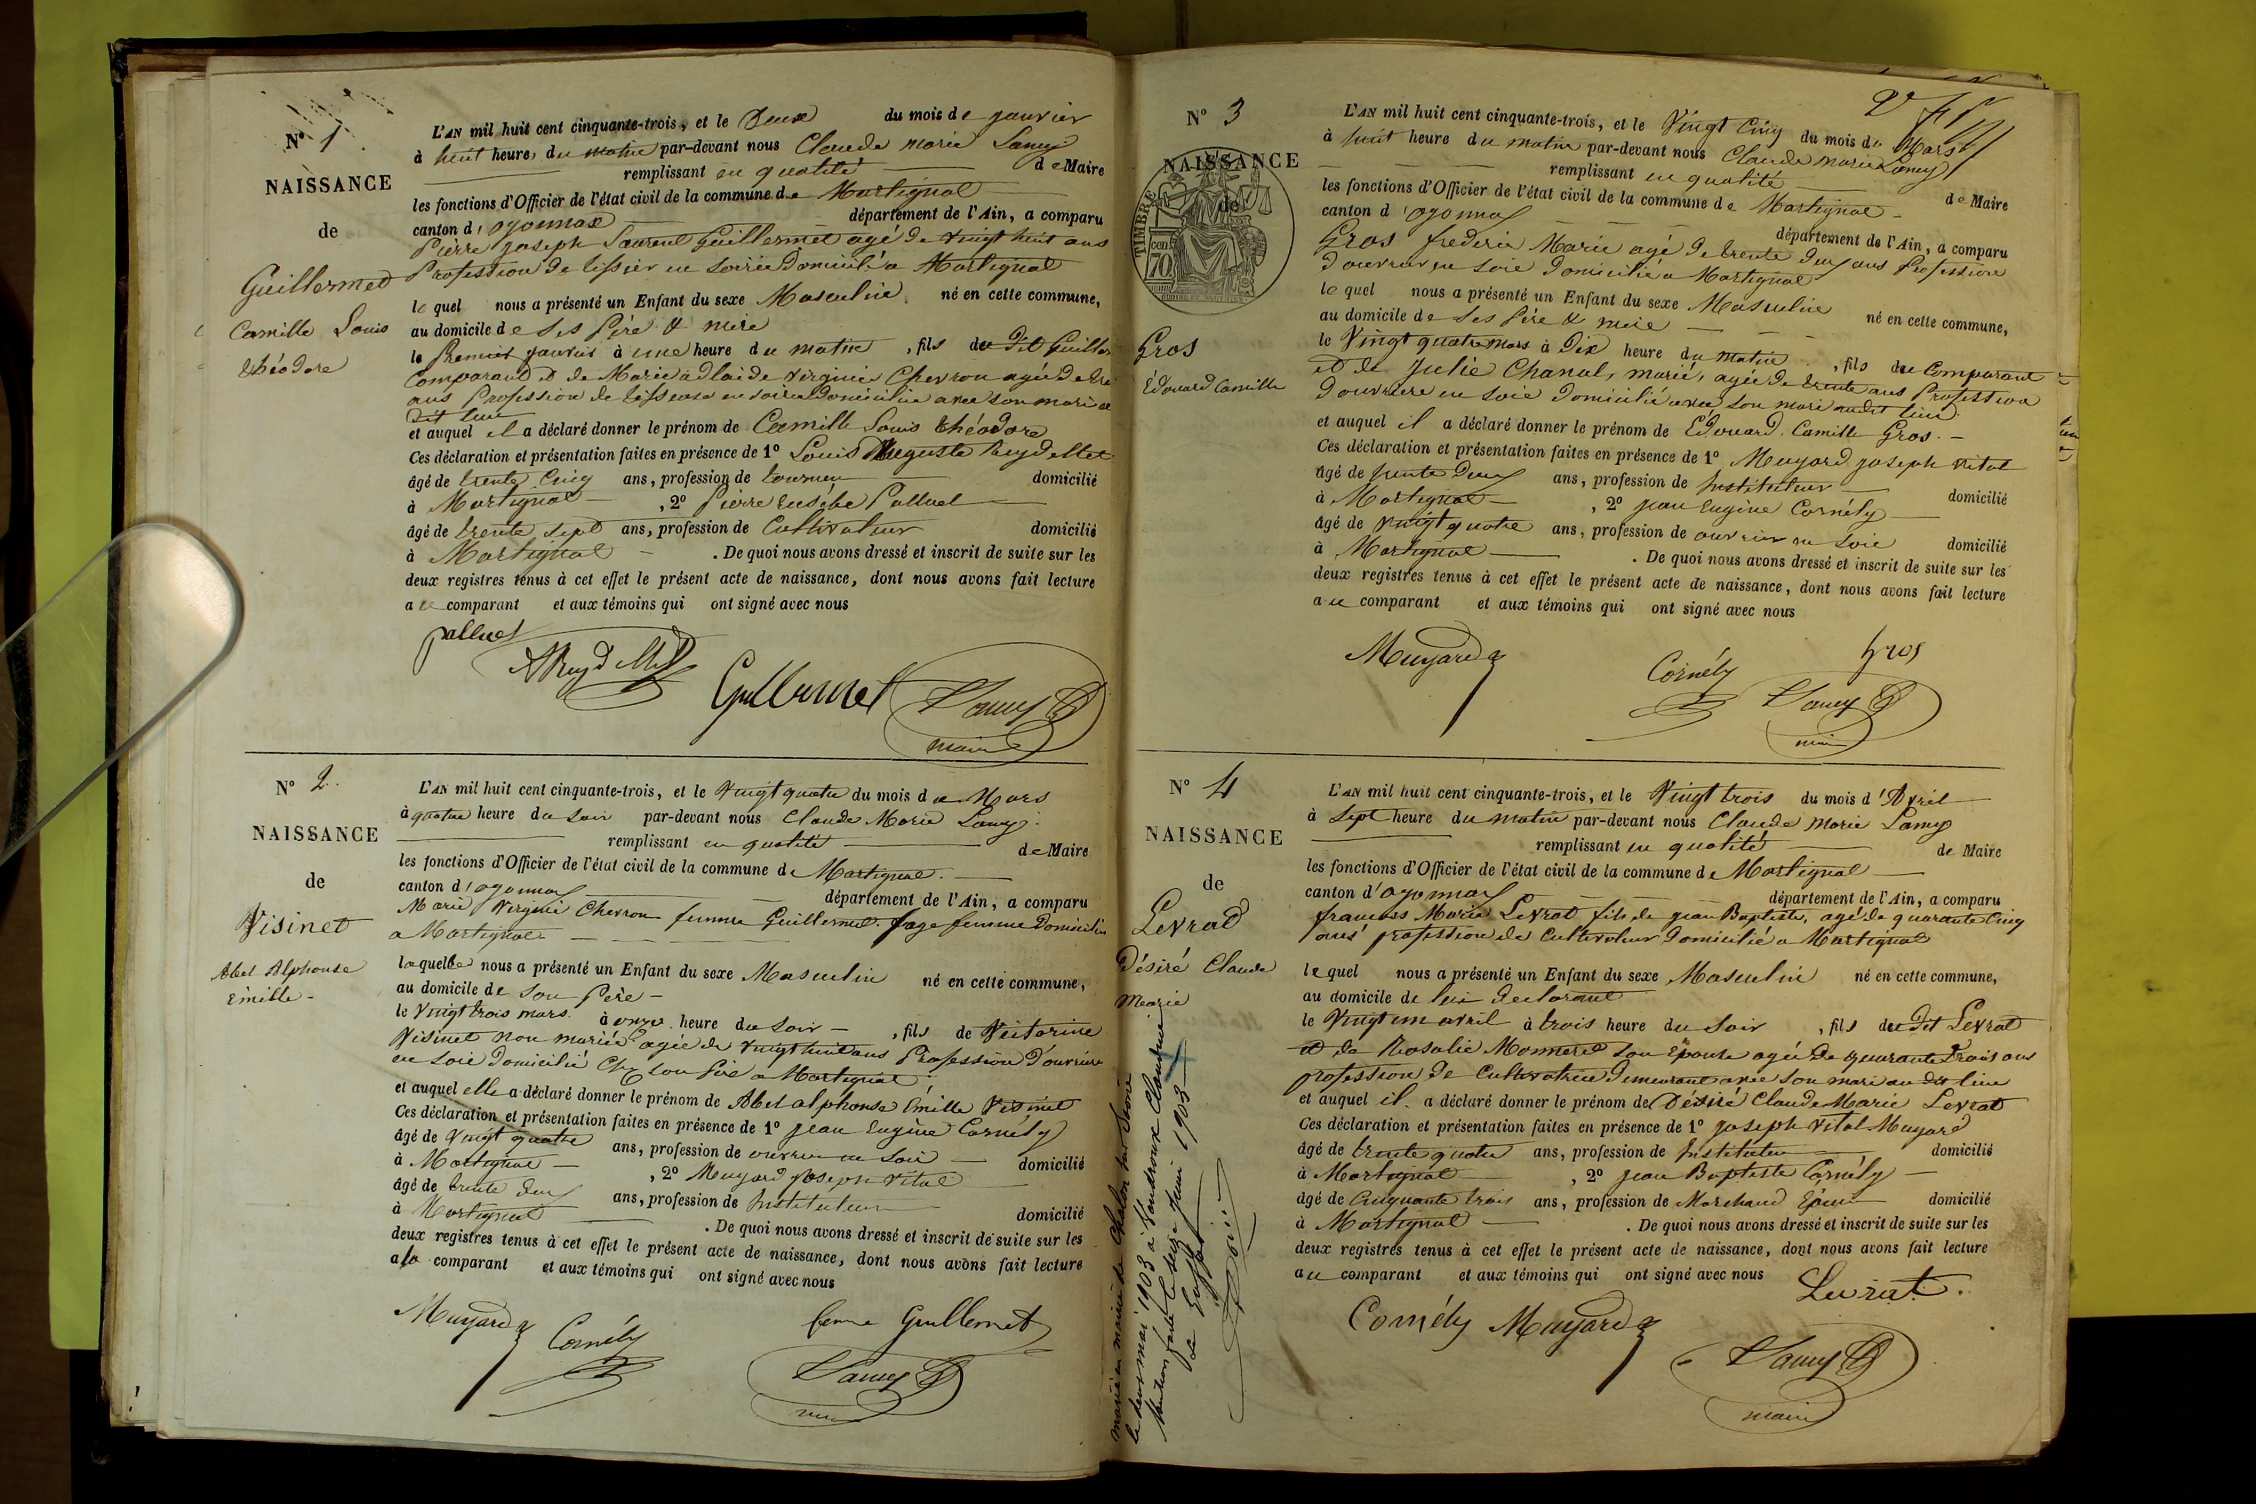 N° 1
NAISSANCE
de
Guillermet
Camille Louis
théodore
L'AN mil huit cent cinquante-trois, et le Deux du mois de janvier
à huit heure, du matin par-devant nous Claude marie Lamy
remplissant en qualité de Maire
les fonctions d'Officier de l'état civil de la commune de Martignat
canton d'oyonnax département de l'Ain, a comparu
Pierre joseph Laurent Guillermet agé de vingt huit ans
Profession de tissier en soie Domicilié a Martignat
le quel nous a présenté un Enfant du sexe Masculin né en cette commune,
au domicile de ses père & mère
le Premier janvier à une heure du matin, fils du Dit Guiller
Comparant et de Marie adlaide virginie Chevron agée de
ans Profession de tisseuse en soie Domiciliée avec son mari
dit lieu
et auquel il a déclaré donner le prénom de Camille Louis théodore
Ces déclaration et présentation faites en présence de 1° Louis Auguste Ruydellet
âgé de trente cinq ans, profession de tourneur domicilié
à Martignat, 2° Pierre Eusèbe Palluet
âgé de trente sept ans, profession de Cultivateur domicilié
à Martignat. De quoi nous avons dressé et inscrit de suite sur les
deux registres tenus à cet effet le présent acte de naissance, dont nous avons fait lecture
au comparant et aux témoins qui ont signé avec nous
palluet
Guillermet
Lamy
maire
N° 2
NAISSANCE
de
Visinet
Abel Alphonse
Emille
L'AN mil huit cent cinquante-trois, et le vingt quatre du mois de Mars
à quatre heure du soir par-devant nous Claude Marie Lamy
remplissant en qualité de Maire
les fonctions d'Officier de l'état civil de la commune de Martignat
canton d'oyonnax département de l'Ain, a comparu
Marie Virginie Chevron femme Guillermet sage femme Domicilié
a Martignat
laquelle nous a présenté un Enfant du sexe Masculin né en cette commune,
au domicile de son Père
le vingt trois mars à onze heure du soir, fils de Victorine
Visinet non mariée agée de vingt huit ans Profession d'ouvrière
en soie Domicilié chez son père a Martignat
et auquel elle a déclaré donner le prénom de Abel alphonse Emille Visinet
Ces déclaration et présentation faites en présence de 1° jean Eugène Cornély
âgé de vingt quatre ans, profession de ouvrier en soie domicilié
à Martignat, 2° Muyard joseph vital
âgé de trente deux ans, profession de Instituteur domicilié
à Martignat. De quoi nous avons dressé et inscrit de suite sur les
deux registres tenus à cet effet le présent acte de naissance, dont nous avons fait lecture
a la comparant et aux témoins qui ont signé avec nous
Muyard
Cornély
femme Guillermet
Lamy
N° 3
NAISSANCE
de
TIMBRE
70
Gros
Édouard Camille
L'AN mil huit cent cinquante-trois, et le Vingt Cinq du mois de Mars
à huit heure du matin par-devant nous Claude marie Lamy
remplissant en qualité de Maire
les fonctions d'Officier de l'état civil de la commune de Martignat
canton d'oyonnax département de l'Ain, a comparu
Gros frederic Marie agé de trente deux ans Profession
d'ouvrier en soie Domicilié a Martignat
le quel nous a présenté un Enfant du sexe Masculin né en cette commune,
au domicile de ses père & mère
le Vingt quatre mars à Dix heure du matin, fils du Comparant
et de Julie Chanal, marié, agée de trente ans Profession
d'ouvriere en soie Domicilié avec son mari audit lieu
et auquel il a déclaré donner le prénom de Édouard Camille Gros.
Ces déclaration et présentation faites en présence de 1° Muyard joseph vital
âgé de trente Deux ans, profession de Instituteur domicilié
à Martignat, 2° jean Eugène Cornély
âgé de vingt quatre ans, profession de ouvrier en soie domicilié
à Martignat. De quoi nous avons dressé et inscrit de suite sur les
deux registres tenus à cet effet le présent acte de naissance, dont nous avons fait lecture
au comparant et aux témoins qui ont signé avec nous
Muyard
Cornély
Gros
Lamy
N° 4
NAISSANCE
de
Levrat
Désiré Claude
Marie
marié en mairie de
le deux mai 1903 à Claudine
Mention faite le seize juin 1903
Le Greffier
L'AN mil huit cent cinquante-trois, et le Vingt trois du mois d'Avril
à Sept heure du matin par-devant nous Claude Marie Lamy
remplissant en qualité de Maire
les fonctions d'Officier de l'état civil de la commune de Martignat
canton d'oyonnax département de l'Ain, a comparu
francois Marie Levrat fils de jean Baptiste, agé de quarante Cinq
ans profession de Cultivateur Domicilié a Martignat
le quel nous a présenté un Enfant du sexe Masculin né en cette commune,
au domicile de lui declarant
le Vingt un avril à trois heure du soir, fils du Dit Levrat
et de Rosalie Monneret son Epouse agée de quarante trois ans
profession de Cultivatrice Demeurant avec son mari au dit lieu
et auquel il a déclaré donner le prénom de Désiré Claude Marie Levrat
Ces déclaration et présentation faites en présence de 1° joseph vital Muyard
âgé de trente quatre ans, profession de Instituteur domicilié
à Martignat, 2° jean Baptiste Cornély
âgé de Cinquante trois ans, profession de Marchand domicilié
à Martignat. De quoi nous avons dressé et inscrit de suite sur les
deux registres tenus à cet effet le présent acte de naissance, dont nous avons fait lecture
au comparant et aux témoins qui ont signé avec nous
Levrat.
Cornély Muyard
Lamy
maire